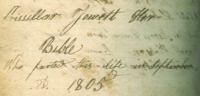 Priscillar Jewett Her
Bible
Who parted this life in September
1805